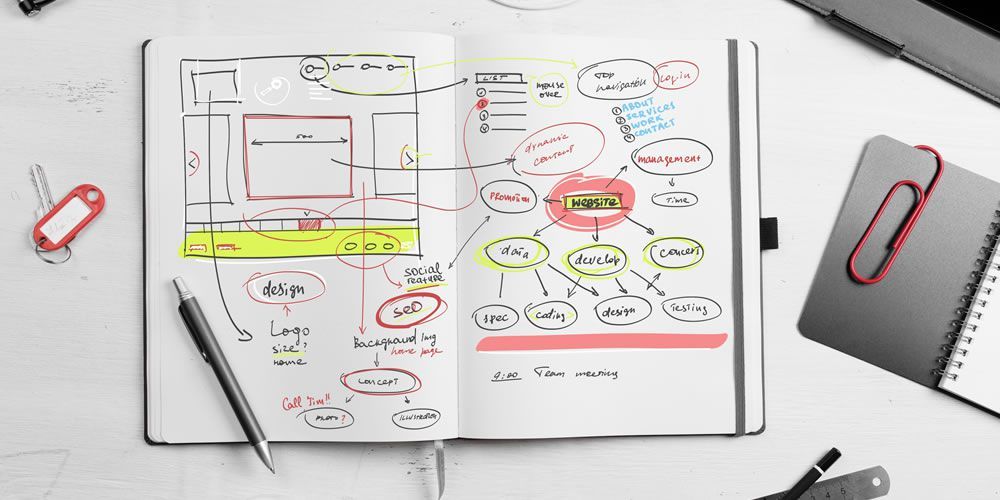 500
design
Logo
size?
name
social
feature
seo
Background Img
home page
concept
Call Jim!!
PHOTO?
ILLUSTRATION
LIST
mouse
over
TOP
navigation
Login
1 ABOUT
2 SERVICES
3 WORK
4 CONTACT
dynamic
content
management
Time
PROMOTION
WEBSITE
data
develop
concept
spec
coding
design
Testing
9:00 Team meeting